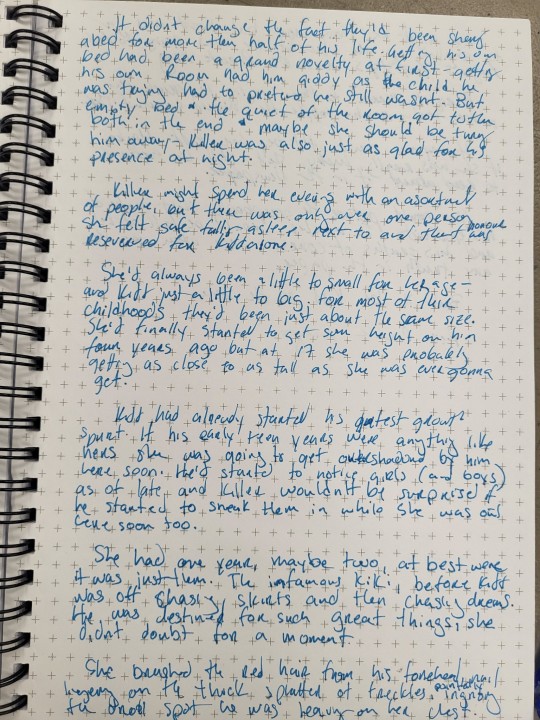 It didn't change the fact they'd been sharing
abed for more then half of his life. Getting his own
bed had been a grand novelty at first - getting
his own Room had him giddy as the child he
was trying had to pretend he still wasnt. But
empty bed & the quiet of the room got to them
both in the end & maybe she should be turning
him away - Killer was also just as glad for his
presence at night.
Killer might spend her evening with an
of people, but there was only ever one person
she felt safe falling asleep next to and that honour was
reserved for Kidd alone.
She'd always been a little to small for her age -
and Kidd just a little to big. For most of their
childhoods they'd been just about the same size.
She'd finally started to get sum height on him
four years ago but at 17 she was probably
getting as close to as tall as she was ever gonna
get.
Kidd had already started his growth
spurt. If his early teen years were anything like
hers she was going to get overshadowed by him
here soon. He'd started to notice girls (and boys)
as of late and Killer wouldn't be surprised if
he started to sneak them in while she was out
here soon too.
She had one year, maybe two, at best were
it was just them. The infamous KiKi, before Kidd
was off chasing skirts and then chasing dreams.
He was destined for such great things, she
didnt doubt for a moment.
She brushed the red hair from his forehead
on the thick splatter of freckles,
the spot he was heavy on her chest